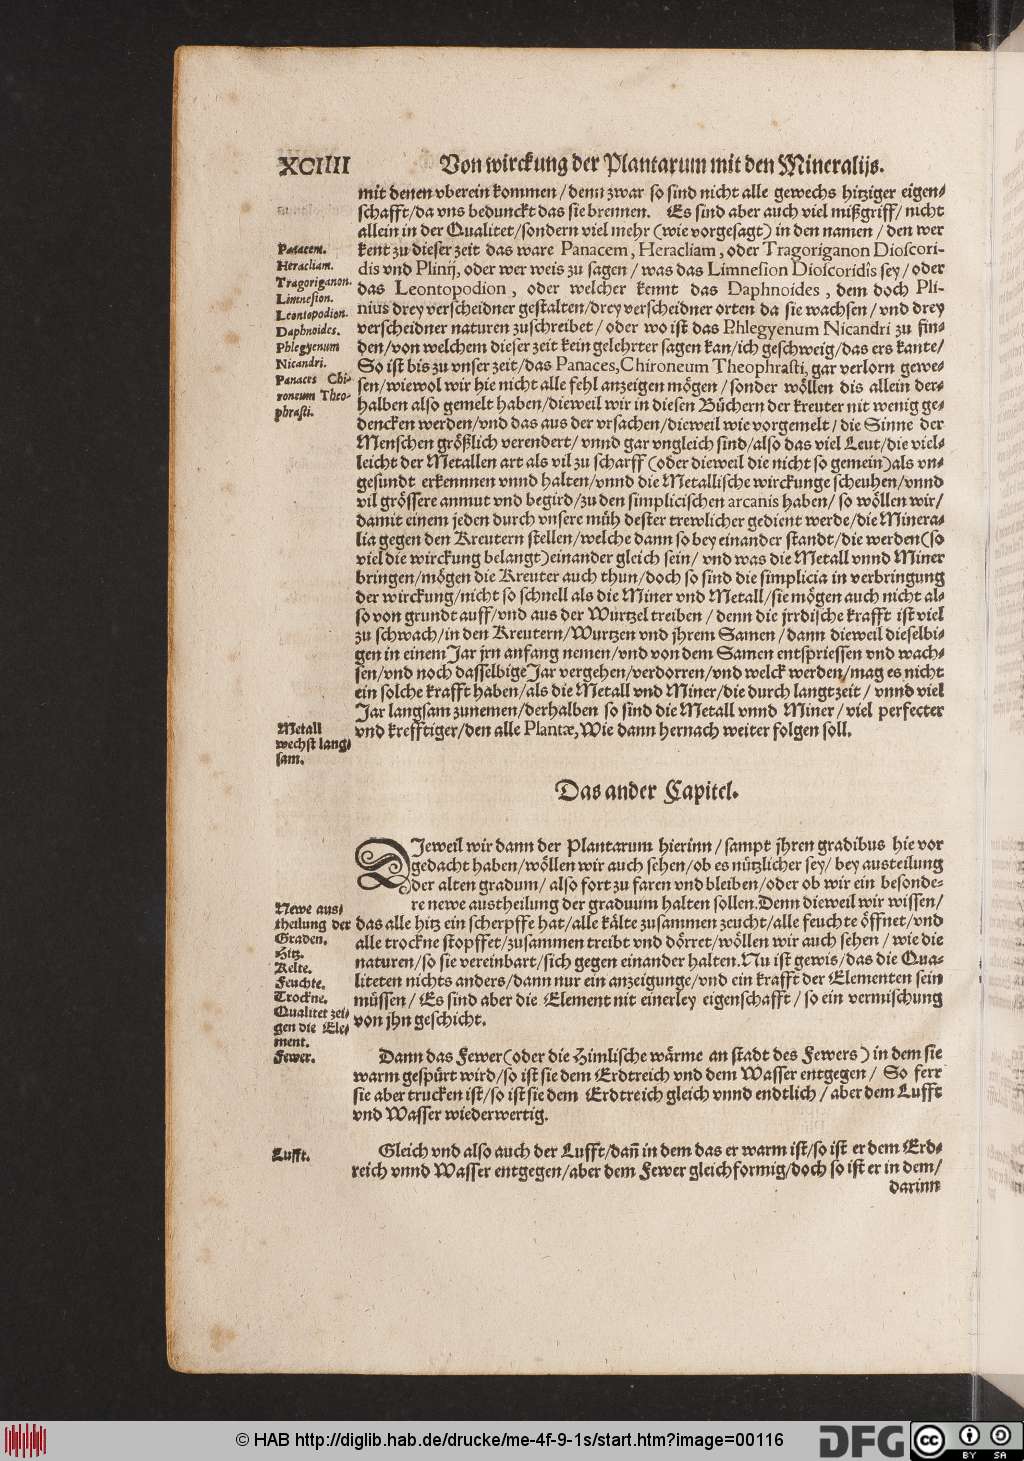 XCIIII
Von wirckung der Plantarum mit den Mineralijs.
mit denen vberein kommen / denn zwar so sind nicht alle gewechs hitziger eigen-
schafft/da vns bedunckt das sie brennen. Es sind aber auch viel mißgriff/ nicht
allein in der Qualitet/sondern viel mehr (wie vorgesagt) in den namen / den wer
kent zu dieser zeit das ware Panacem, Heracliam, oder Tragoriganon Dioscori-
dis vnd Plinij, oder wer weis zu sagen / was das Limnesion Dioscoridis sey / oder
das Leontopodion, oder welcher kennt das Daphnoides, dem doch Pli-
nius drey verscheidner gestalten/drey verscheidner orten da sie wachsen / vnd drey
verscheidner naturen zuschreibet / oder wo ist das Phlegyenum Nicandri zu fin-
den/von welchem dieser zeit kein gelehrter sagen kan/ich geschweig/das ers kante/
So ist bis zu vnser zeit/das Panaces, Chironeum Theophrasti, gar verlorn gewe-
sen/wiewol wir hie nicht alle fehl anzeigen mögen / sonder wöllen dis allein der-
halben also gemelt haben/dieweil wir in diesen Büchern der kreuter nit wenig ge-
dencken werden/vnd das aus der vrsachen/dieweil wie vorgemelt / die Sinne der
Menschen größlich verendert/ vnnd gar vngleich sind/also das viel Leut/die viel-
leicht der Metallen art als vil zu scharff (oder dieweil die nicht so gemein)als vn-
gesundt erkennnen vnnd halten/vnnd die Metallische wirckunge scheuhen/vnnd
vil grössere anmut vnd begird/zu den simplicischen arcanis haben/ so wöllen wir/
damit einem jeden durch vnsere müh dester trewlicher gedient werde/die Minera-
lia gegen den Kreutern stellen/welche dann so bey einander standt/die werden(so
viel die wirckung belangt)einander gleich sein/ vnd was die Metall vnnd Miner
bringen/mögen die Kreuter auch thun/doch so sind die simplicia in verbringung
der wirckung/nicht so schnell als die Miner vnd Metall/sie mögen auch nicht al-
so von grundt auff/vnd aus der Wurtzel treiben / denn die jrrdische krafft ist viel
zu schwach/in den Kreutern/Wurtzen vnd jhrem Samen / dann dieweil dieselbi-
gen in einem Jar jrn anfang nemen/vnd von dem Samen entspriessen vnd wach-
sen/vnd noch dasselbige Jar vergehen/verdorren/vnd welck werden/mag es nicht
ein solche krafft haben/als die Metall vnd Miner/die durch langt zeit / vnnd viel
Jar langsam zunemen/derhalben so sind die Metall vnnd Miner / viel perfecter
vnd krefftiger/den alle Plantæ, Wie dann hernach weiter folgen soll.
Panacem.
Heracliam.
Tragoriganon.
Limnesion.
Leontopodion.
Daphnoides.
Phlegyenum
Nicandri.
Panaces Chi-
roneum Theo-
phrasti.
Metall
wechst lang-
sam.
Das ander Capitel.
DJeweil wir dann der Plantarum hierinn / sampt jhren gradibus hie vor
gedacht haben/wöllen wir auch sehen/ob es nützlicher sey/ bey austeilung
der alten gradum/ also fort zu faren vnd bleiben/oder ob wir ein besonde-
re newe austheilung der graduum halten sollen. Denn dieweil wir wissen/
das alle hitz ein scherpffe hat/alle kälte zusammen zeucht/alle feuchte öffnet/vnd
alle trockne stopffet/zusammen treibt vnd dörret/wöllen wir auch sehen / wie die
naturen/so sie vereinbart/sich gegen einander halten. Nu ist gewis/das die Qua-
liteten nichts anders/dann nur ein anzeigunge/vnd ein krafft der Elementen sein
müssen / Es sind aber die Element nit einerley eigenschafft / so ein vermischung
von jhn geschicht.
Newe aus-
theilung der
Graden.
Hitz.
Kelte.
Feuchte.
Trockne.
Qualitet zei-
gen die Ele-
ment.
Fewer.
Dann das Fewer(oder die Himlische wärme an stadt des Fewers) in dem sie
warm gespürt wird/so ist sie dem Erdtreich vnd dem Wasser entgegen / So ferr
sie aber trucken ist/so ist sie dem Erdtreich gleich vnnd endtlich / aber dem Lufft
vnd Wasser wiederwertig.
Lufft.
Gleich vnd also auch der Lufft/dañ in dem das er warm ist/so ist er dem Erd-
reich vnnd Wasser entgegen/aber dem Fewer gleichformig/doch so ist er in dem/
darinn
© HAB http://diglib.hab.de/drucke/me-4f-9-1s/start.htm?image=00116
DFG
cc
BY SA